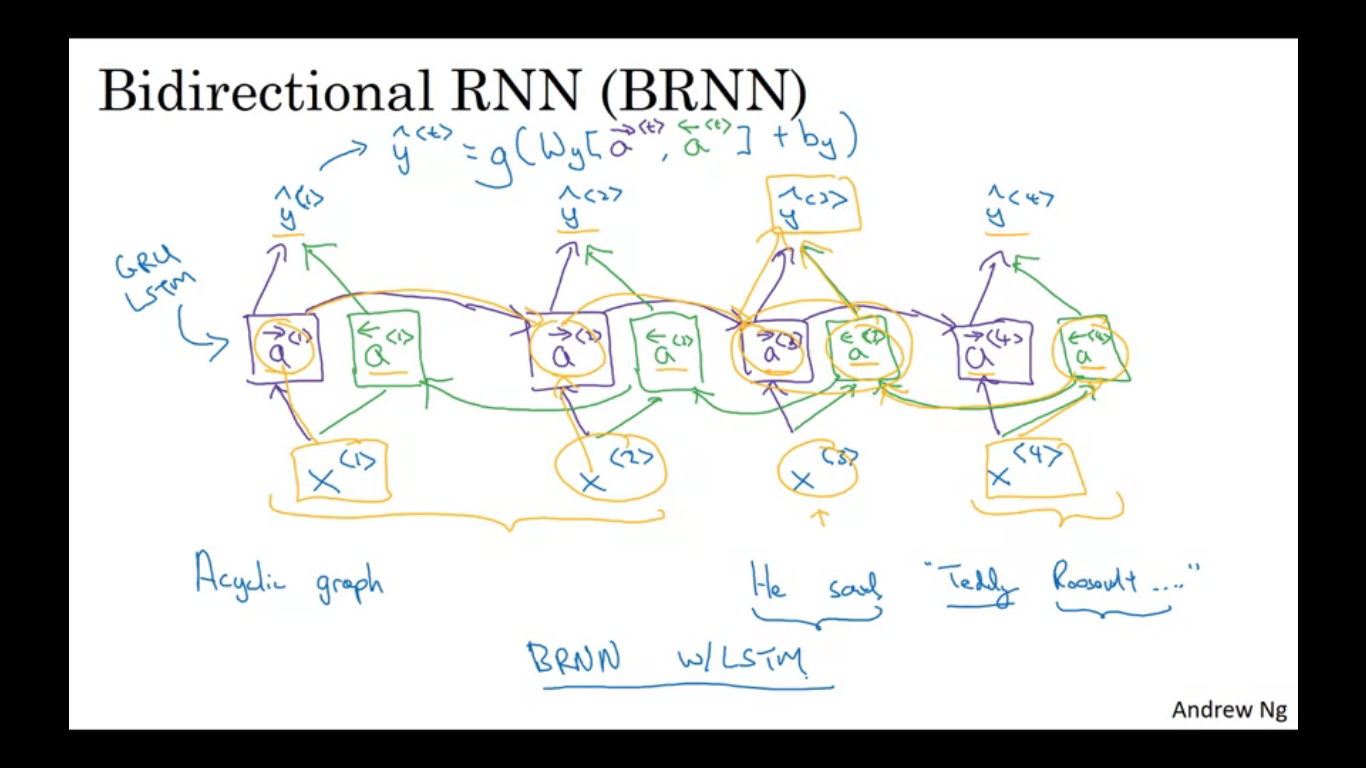 Bidirectional RNN (BRNN)
ŷ<t> = g(Wy[a→<t>, a←<t>] + by)
ŷ<1> ŷ<2> ŷ<3> ŷ<4>
GRU
LSTM
a→<1> a←<1> a→<2> a←<2> a→<3> a←<3> a→<4> a←<4>
x<1> x<2> x<3> x<4>
Acyclic graph
He said, "Teddy Roosevelt ...."
BRNN w/LSTM
Andrew Ng